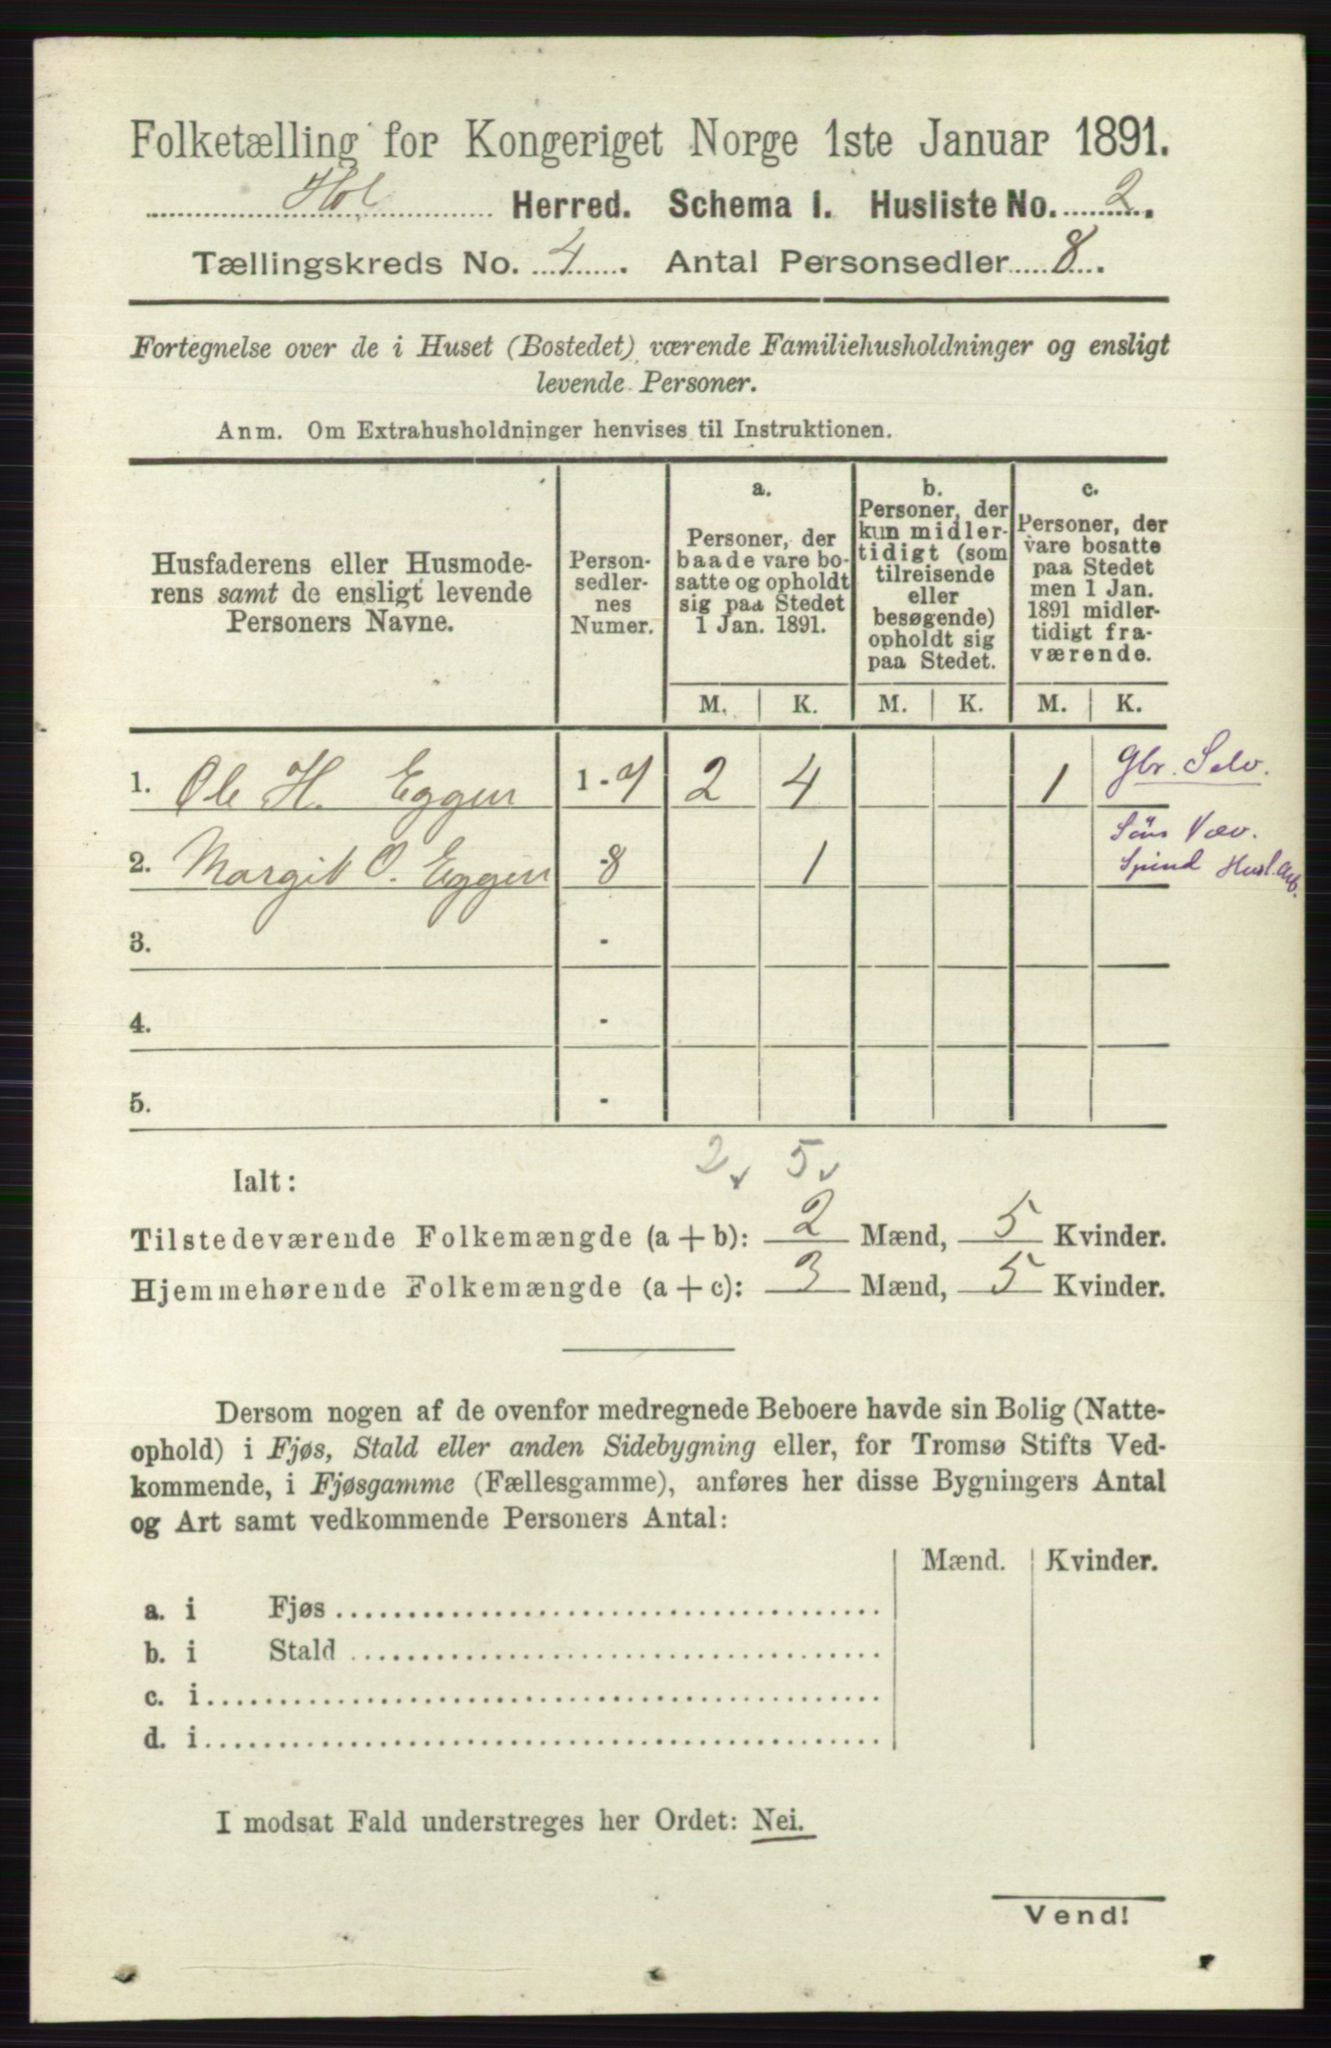 Folketælling for Kongeriget Norge 1ste Januar 1891.
Hol Herred. Schema I. Husliste No. 2.
Tællingskreds No. 4. Antal Personsedler 8.
Fortegnelse over de i Huset (Bostedet) værende Familiehusholdninger og ensligt
levende Personer.
Anm. Om Extrahusholdninger henvises til Instruktionen.
Husfaderens eller Husmode-
rens samt de ensligt levende
Personers Navne.
Person-
sedler-
nes
Numer.
a.
Personer, der
baade vare bo-
satte og opholdt
sig paa Stedet
1 Jan. 1891.
b.
Personer, der
kun midler-
tidigt (som
tilreisende
eller
besøgende)
opholdt sig
paa Stedet.
c.
Personer, der
vare bosatte
paa Stedet
men 1 Jan.
1891 midler-
tidigt fra-
værende.
M. K. M. K. M. K.
1. Ole H. Eggen 1-7 2 4 1 Gbr. Selv.
2. Margit O. Eggen -8 1
Væv.
Spind Husl. Arb.
3. -
4. -
5. -
2 5
Ialt:
Tilstedeværende Folkemængde (a + b): 2 Mænd, 5 Kvinder.
Hjemmehørende Folkemængde (a + c): 3 Mænd, 5 Kvinder.
Dersom nogen af de ovenfor medregnede Beboere havde sin Bolig (Natte-
ophold) i Fjøs, Stald eller anden Sidebygning eller, for Tromsø Stifts Ved-
kommende, i Fjøsgamme (Fællesgamme), anføres her disse Bygningers Antal
og Art samt vedkommende Personers Antal:
Mænd. Kvinder.
a. i Fjøs
b. i Stald
c. i
d. i
I modsat Fald understreges her Ordet: Nei.
Vend!